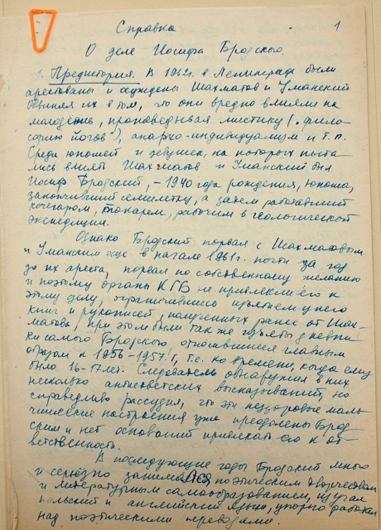 Справка 1
О деле Иосифа Бродского.
1. Предистория. В 1962г. в Ленинграде были
арестованы и осуждены Шахматов и Уманский
обвиняя их в том, что они вредно влияли на
молодежь, проповедывая мистику (. фило-
софию йогов"), анархо-индивидуализм и т.п.
Среди юношей и девушек, на которых пыта-
лись влиять Шахматов и Уманский был
Иосиф Бродский, - 1940 года рождения, юноша,
закончивший семилетку, а затем работавший
кочегаром, токарем, рабочим в геологической
экспедиции.
Однако Бродский порвал с Шахматовым
и Уманским еще в начале 1961г. почти за год
до их ареста, порвал по собственному желанию
и поэтому органы КГБ не привлекли его к
этому делу, ограничившись изъятием у него
книг и рукописей, полученных ранее от Шах-
матова; при этом были так же изъяты дневни-
ки самого Бродского, относившиеся главным
образом к 1956-1957г., т.е. ко времени, когда ему
было 16-17 лет. Следователь обнаружил в них
несколько антисоветских высказываний, но
справедливо рассудил, что эти нездоровые маль-
чишеские настроения уже преодолены Брод-
ским и нет оснований привлекать его к от-
ветственности.
В последующие годы Бродский много
и серьезно занимался поэтическим творчеством
и литературным самообразованием, изучал
польский и английский языки, упорно работал
над поэтическими переводами.